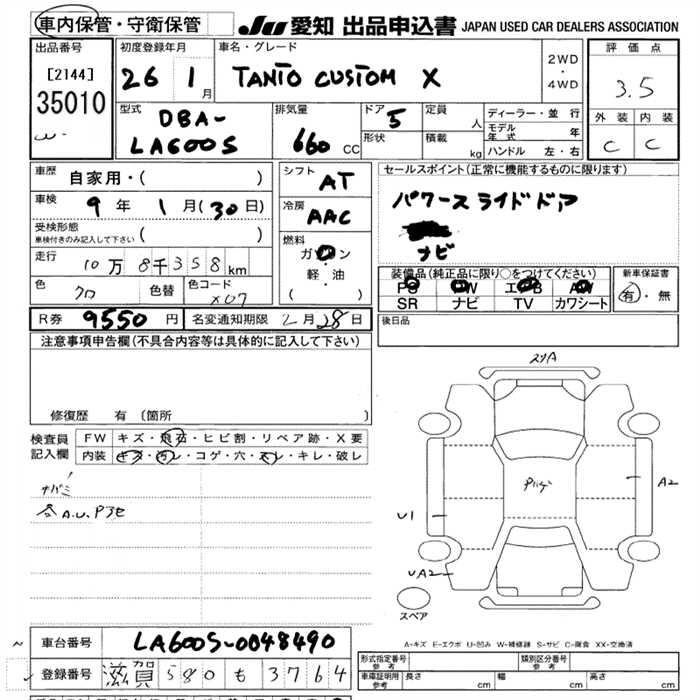 車内保管・守衛保管
JU 愛知 出品申込書 JAPAN USED CAR DEALERS ASSOCIATION
出品番号 初度登録年月 車名・グレード 2WD・4WD 評価点
[2144]
35010
26 1月 TANTO CUSTOM X
3.5
型式 DBA-LA600S
排気量 660 cc
ドア 5
形状
定員 人
積載 kg
ディーラー・並行
モデル年式 年
ハンドル 左・右
外装 内装
C C
車歴 自家用・( )
シフト AT
セールスポイント(正常に機能するものに限ります)
パワースライドドア
ナビ
車検 9年 1月(30日)
冷房 AAC
受検形態
車検付きのみ記入して下さい ( )
燃料 ガソリン
軽・油
( )
走行 10万8千358km
色 クロ 色替 色コード X07
装備品(純正品に限り○をつけてください)
PS PW エアB AW
SR ナビ TV カワシート
新車保証書
有・無
R券 9550円 名変通知期限 2月28日
後日品
注意事項申告欄(不具合内容等は具体的に記入して下さい)
修復歴 有(箇所 )
検査員記入欄
FW キズ・飛石・ヒビ割・リペア跡・X要
内装 キズ・汚レ・コゲ・穴・スレ・キレ・破レ
A.U.P
A2
U1
UA2
スペア
A-キズ E-エクボ U-凹み W-補修跡 S-サビ C-腐食 XX-交換済
車台番号 LA600S-0048490
登録番号 滋賀 580 も 3764
形式指定番号 参考
類別区分番号 参考
車庫証明用 参考 長さ cm 幅 cm 高さ cm